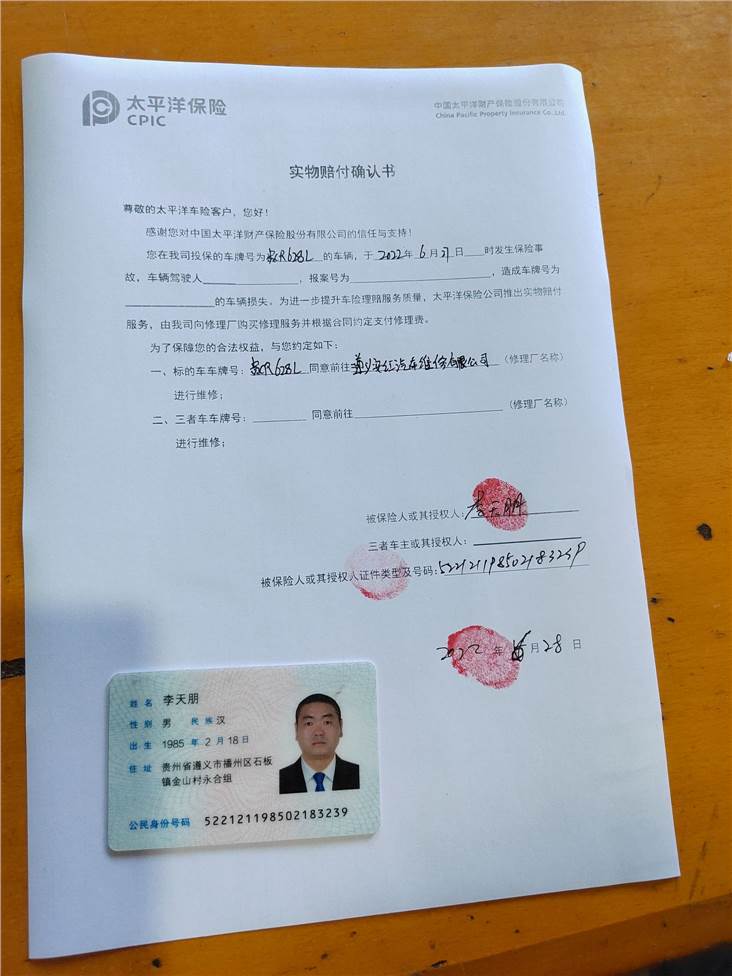 太平洋保险
CPIC
中国太平洋财产保险股份有限公司
China Pacific Property Insurance Co.,Ltd.
实物赔付确认书
尊敬的太平洋车险客户，您好！
感谢您对中国太平洋财产保险股份有限公司的信任与支持！
您在我司投保的车牌号为贵CR628L的车辆，于2022年6月27日____时发生保险事
故，车辆驾驶人________，报案号为________，造成车牌号为
________的车辆损失。为进一步提升车险理赔服务质量，太平洋保险公司推出实物赔付
服务，由我司向修理厂购买修理服务并根据合同约定支付修理费。
为了保障您的合法权益，与您约定如下：
一、标的车车牌号：贵CR628L 同意前往遵义安红汽车维修有限公司（修理厂名称）
进行维修；
二、三者车车牌号：________ 同意前往________（修理厂名称）
进行维修；
被保险人或其授权人：李天朋
三者车主或其授权人：
被保险人或其授权人证件类型及号码：522121198502183239
2022年6月28日
姓名 李天朋
性别 男 民族 汉
出生 1985年2月18日
住址 贵州省遵义市播州区石板
镇金山村永合组
公民身份号码 522121198502183239